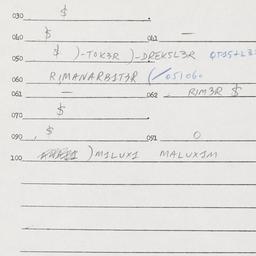 030 $
040 $ 041 —
050 $ )-TOK3R )-DREKSL3R
060 RIMANARB1T3R (/051060
061 — 062 . RIM3R $
070 $
090 . $ 091 O
100 )M1LUX1 MALUX1M